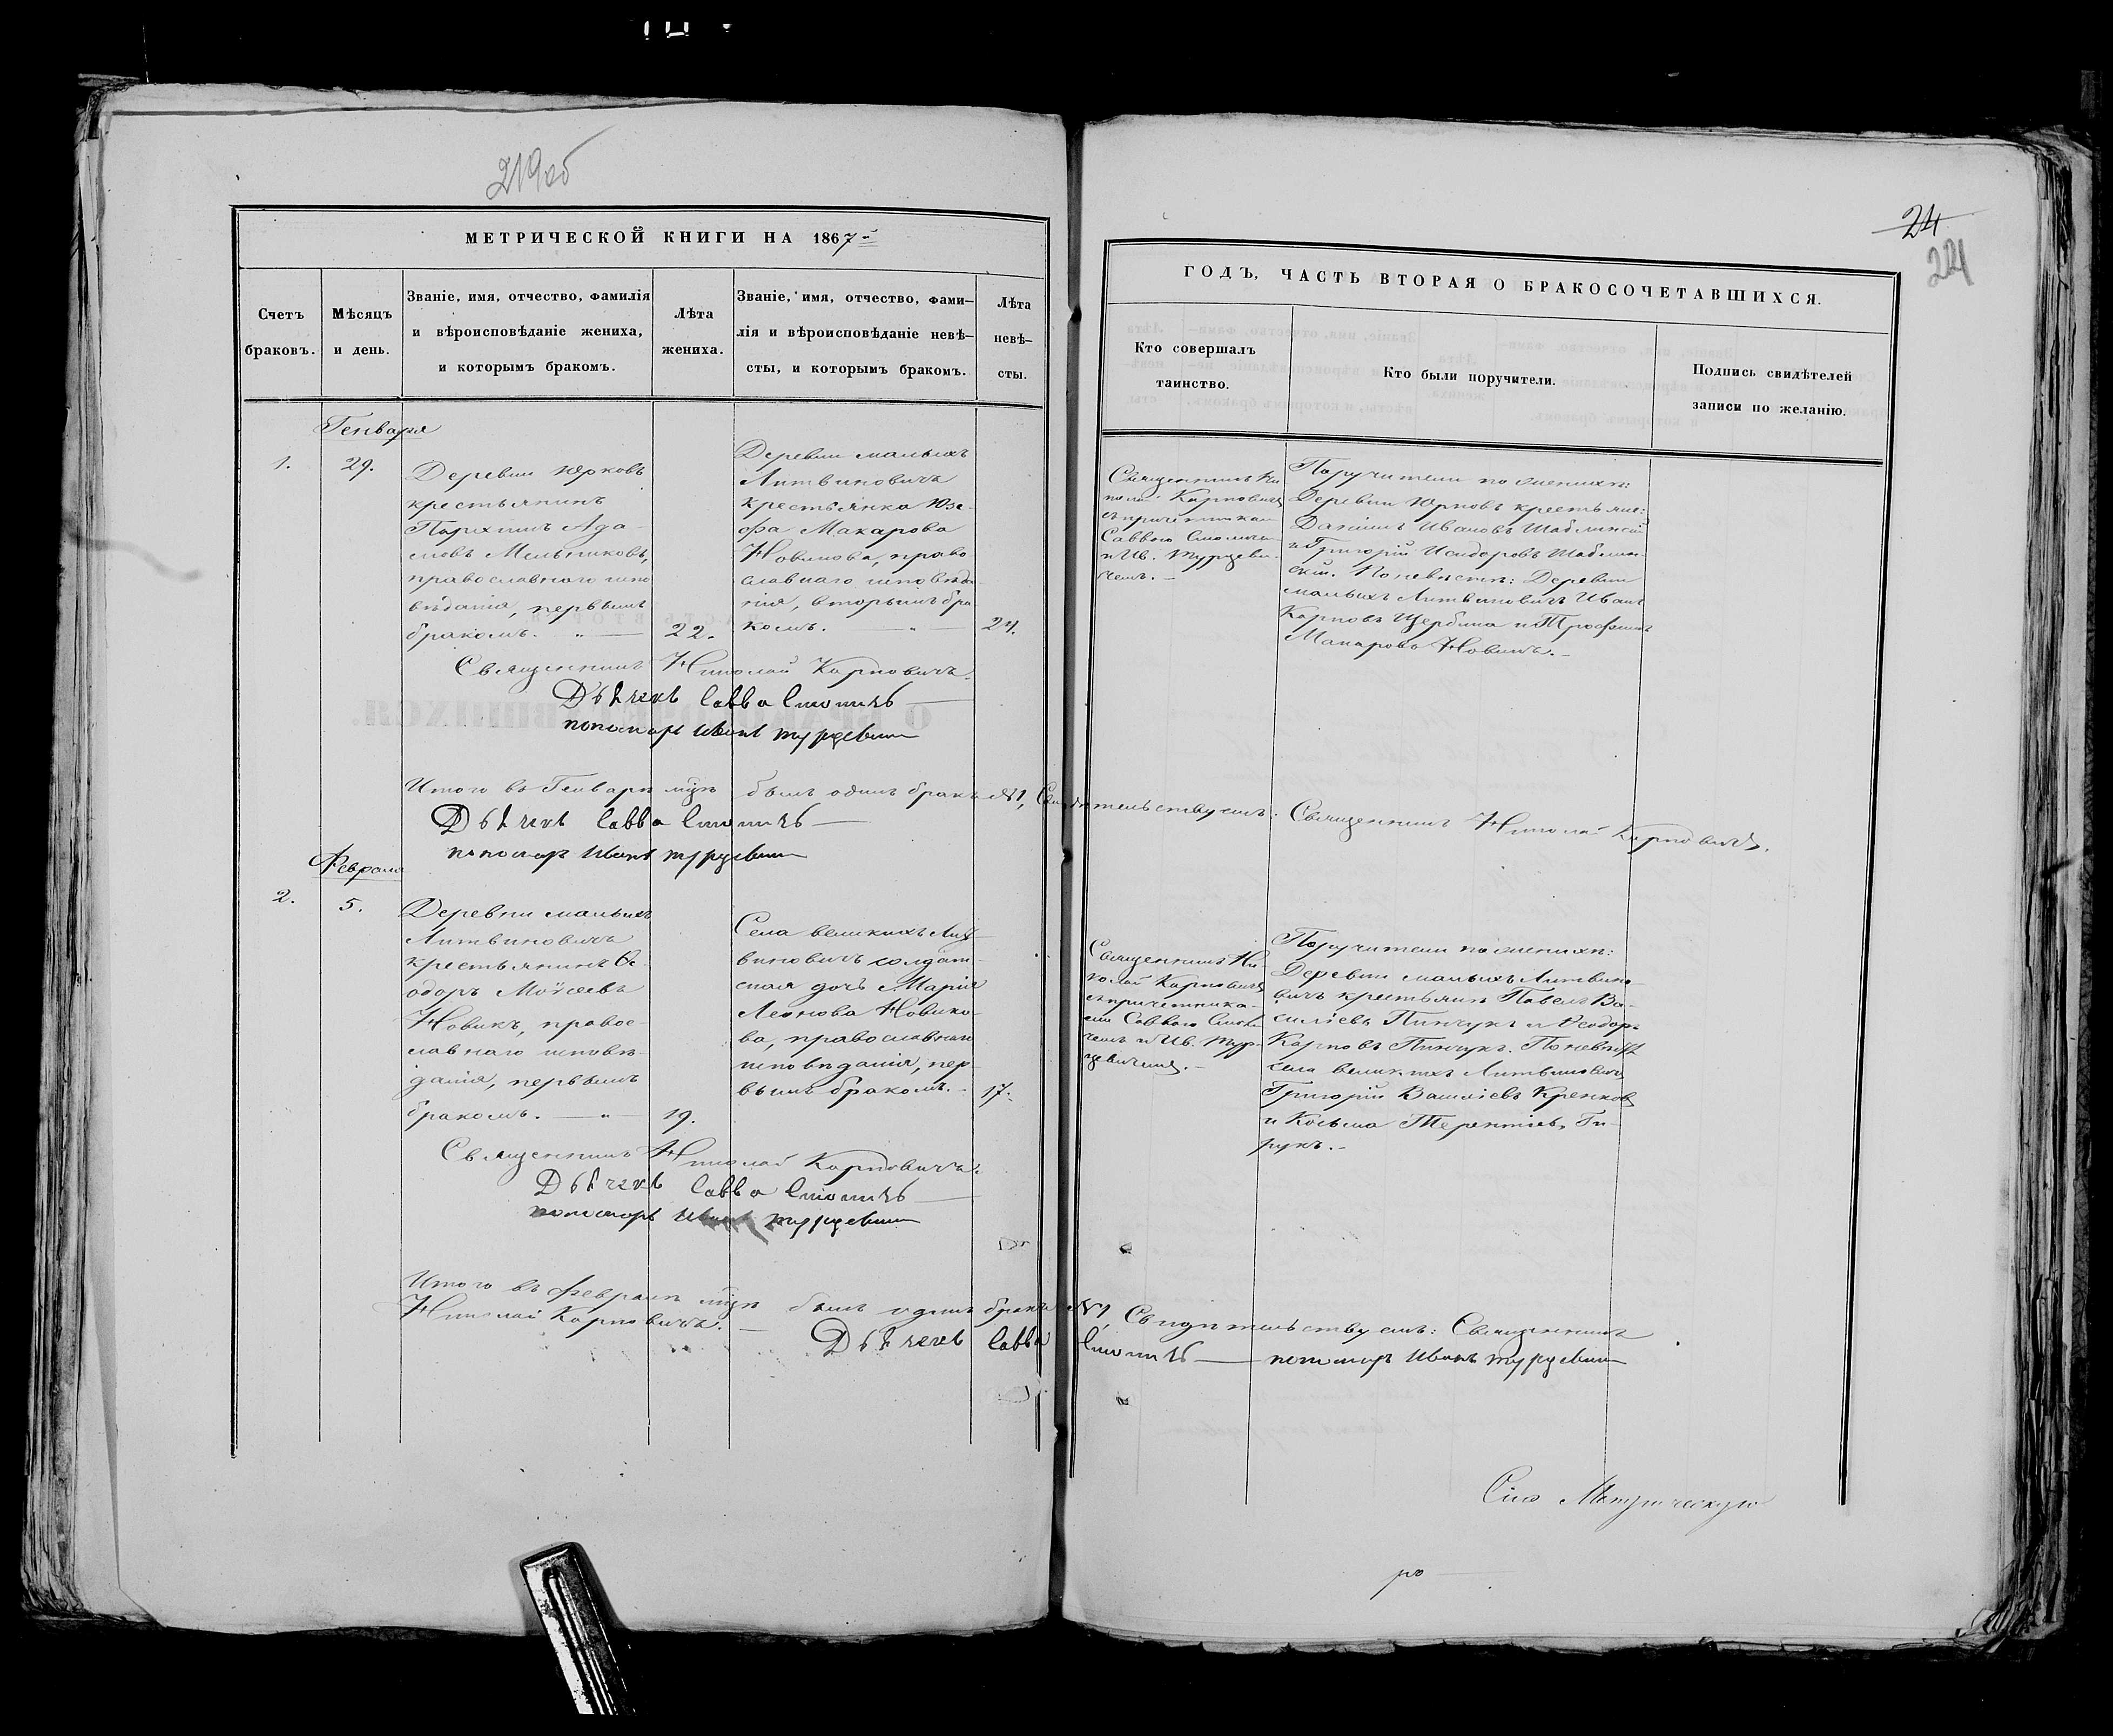 219об
МЕТРИЧЕСКОЙ КНИГИ НА 1867й
Счетъ
браковъ.
Мѣсяцъ
и день.
Званіе, имя, отчество, фамилія
и вѣроисповѣданіе жениха,
и которымъ бракомъ.
Лѣта
жениха.
Званіе, имя, отчество, фами-
лія и вѣроисповѣданіе невѣ-
сты, и которымъ бракомъ.
Лѣта
невѣ-
сты.
Генваря
1.
29.
Деревни Юрковъ
крестьянинъ
Пархимъ Ада-
мовъ Мельниковъ,
православнаго испо
вѣданія, первымъ
бракомъ. — „ —
22.
Деревни малыхъ
Литвиновичъ
крестьянка Юзе-
фа Макарова
Новикова, право
славнаго исповѣда
нія, вторымъ бра
комъ. — „ —
24.
Священникъ Николай Карповичъ.
Дьячекъ Савва
пономарь Иванъ Турцевич
Итого въ Генварѣ мцѣ былъ одинъ бракъ №1, Свидѣтельствуемъ: Священникъ Николай Карповичъ.
Дьячекъ Савва
пономарь Иванъ Турцевич
Февраля
2.
5.
Деревни малыхъ
Литвиновичъ
крестьянинъ Ѳе-
одоръ Моѵсеевъ
Новикъ, правос-
лавнаго исповѣ-
данія, первымъ
бракомъ. — „ —
19.
Села великихъ Лит-
виновичъ солдат-
ская дочь Марія
Леонова Новико-
ва, православнаго
исповѣданія, пер-
вымъ бракомъ. -
17.
Священникъ Николай Карповичъ.
Дьячекъ Савва
пономарь Иванъ Турцевич
Итого въ Февралѣ мцѣ былъ одинъ бракъ №1, Свидѣтельствуемъ: Священникъ
Николай Карповичъ. — Дьячекъ Савва — пономарь Иванъ Турцевич
24
224
ГОДЪ, ЧАСТЬ ВТОРАЯ О БРАКОСОЧЕТАВШИХСЯ.
Кто совершалъ
таинство.
Кто были поручители.
Подпись свидѣтелей
записи по желанію.
Священникъ Ни
колай Карповичъ
съ причетниками
Саввою
и Ив. Турцеви-
чемъ. -
Поручители по женихѣ:
Деревни Юрковъ крестьяне:
Даніилъ Ивановъ Шаблинскій
и Григорій Исидоровъ Шаблин-
скій. По невѣстѣ: Деревни
малыхъ Литвиновичъ Иванъ
Карповъ Щербина и Трофимъ
Макаровъ Новикъ. -
Священникъ Ни-
колай Карповичъ
съ причетника-
ми Саввою
чемъ и Ив. Тур-
цевичемъ. -
Поручители по женихѣ:
Деревни малыхъ Литвино-
вичъ крестьяне Павелъ Ва-
силіевъ Пинчукъ и Ѳеодоръ
Карповъ Пинчукъ. По невѣстѣ
села великихъ Литвиновичъ
Григорій Василіевъ
и Косьма Терентіевъ Ги-
рукъ. -
Сію Метрическую
ро